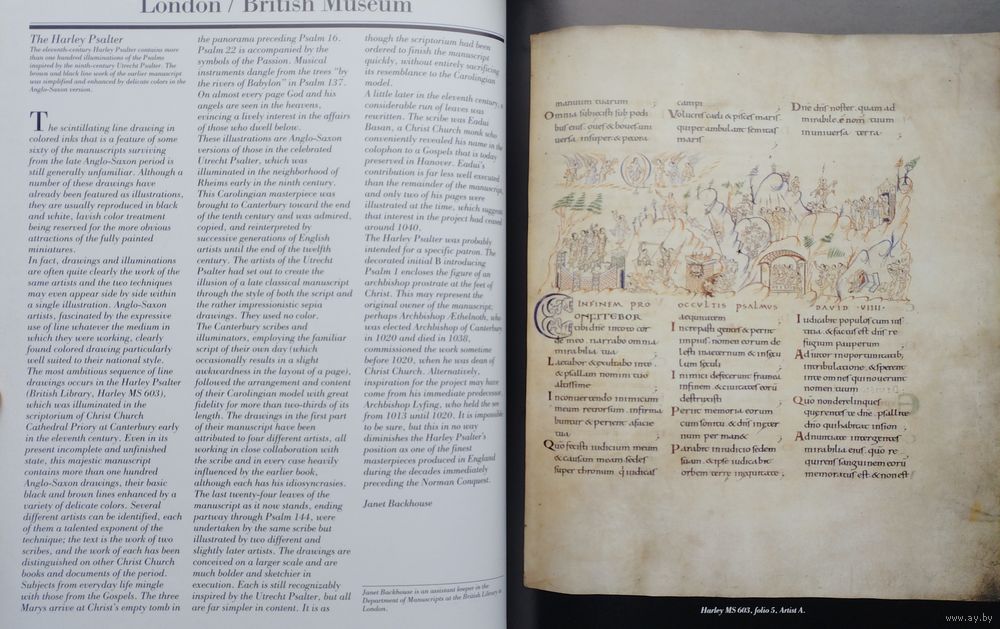 London / British Museum
The Harley Psalter
The eleventh-century Harley Psalter contains more
than one hundred illuminations of the Psalms
inspired by the ninth-century Utrecht Psalter. The
brown and black line work of the earlier manuscript
was simplified and enhanced by delicate colors in the
Anglo-Saxon version.
The scintillating line drawing in
colored inks that is a feature of some
sixty of the manuscripts surviving
from the late Anglo-Saxon period is
still generally unfamiliar. Although a
number of these drawings have
already been featured as illustrations,
they are usually reproduced in black
and white, lavish color treatment
being reserved for the more obvious
attractions of the fully painted
miniatures.
In fact, drawings and illuminations
are often quite clearly the work of the
same artists and the two techniques
may even appear side by side within
a single illustration. Anglo-Saxon
artists, fascinated by the expressive
use of line whatever the medium in
which they were working, clearly
found colored drawing particularly
well suited to their national style.
The most ambitious sequence of line
drawings occurs in the Harley Psalter
(British Library, Harley MS 603),
which was illuminated in the
scriptorium of Christ Church
Cathedral Priory at Canterbury early
in the eleventh century. Even in its
present incomplete and unfinished
state, this majestic manuscript
contains more than one hundred
Anglo-Saxon drawings, their basic
black and brown lines enhanced by a
variety of delicate colors. Several
different artists can be identified, each
of them a talented exponent of the
technique; the text is the work of two
scribes, and the work of each has been
distinguished on other Christ Church
books and documents of the period.
Subjects from everyday life mingle
with those from the Gospels. The three
Marys arrive at Christ's empty tomb in
the panorama preceding Psalm 16.
Psalm 22 is accompanied by the
symbols of the Passion. Musical
instruments dangle from the trees "by
the rivers of Babylon" in Psalm 137.
On almost every page God and his
angels are seen in the heavens,
evincing a lively interest in the affairs
of those who dwell below.
These illustrations are Anglo-Saxon
versions of those in the celebrated
Utrecht Psalter, which was
illuminated in the neighborhood of
Rheims early in the ninth century.
This Carolingian masterpiece was
brought to Canterbury toward the end
of the tenth century and was admired,
copied, and reinterpreted by
successive generations of English
artists until the end of the twelfth
century. The artists of the Utrecht
Psalter had set out to create the
illusion of a late classical manuscript
through the style of both the script and
the rather impressionistic sepia
drawings. They used no color.
The Canterbury scribes and
illuminators, employing the familiar
script of their own day (which
occasionally results in a slight
awkwardness in the layout of a page),
followed the arrangement and content
of their Carolingian model with great
fidelity for more than two-thirds of its
length. The drawings in the first part
of their manuscript have been
attributed to four different artists, all
working in close collaboration with
the scribe and in every case heavily
influenced by the earlier book,
although each has his idiosyncrasies.
The last twenty-four leaves of the
manuscript as it now stands, ending
partway through Psalm 144, were
undertaken by the same scribe but
illustrated by two different and
slightly later artists. The drawings are
conceived on a larger scale and are
much bolder and sketchier in
execution. Each is still recognizably
inspired by the Utrecht Psalter, but all
are far simpler in content. It is as
though the scriptorium had been
ordered to finish the manuscript
quickly, without entirely sacrificing
its resemblance to the Carolingian
model.
A little later in the eleventh century, a
considerable run of leaves was
rewritten. The scribe was Eadui
Basan, a Christ Church monk who
conveniently revealed his name in the
colophon to a Gospels that is today
preserved in Hanover. Eadui's
contribution is far less well executed
than the remainder of the manuscript,
and only two of his pages were
illustrated at the time, which suggests
that interest in the project had ceased
around 1040.
The Harley Psalter was probably
intended for a specific patron. The
decorated initial B introducing
Psalm 1 encloses the figure of an
archbishop prostrate at the feet of
Christ. This may represent the
original owner of the manuscript,
perhaps Archbishop Æthelnoth, who
was elected Archbishop of Canterbury
in 1020 and died in 1038,
commissioned the work sometime
before 1020, when he was dean of
Christ Church. Alternatively,
inspiration for the project may have
come from his immediate predecessor,
Archbishop Lyfing, who held the see
from 1013 until 1020. It is impossible
to be sure, but this in no way
diminishes the Harley Psalter's
position as one of the finest
masterpieces produced in England
during the decades immediately
preceding the Norman Conquest.
Janet Backhouse
Janet Backhouse is an assistant keeper in the
Department of Manuscripts at the British Library in
London.
manuum tuarum
Omnia subiecisti sub pedi
bus eius oues & boues uni
uersa insuper & pecora
campi
Volucres caeli & pisces maris
qui perambulant semitas
maris
Dne dns noster quam ad
mirabile e nom tuum
in uniuersa terra
IN FINEM PRO
OCCULTIS PSALMUS
DAVID VIIII
CONFITEBOR
tibi dne in toto cor
de meo narrabo omnia
mirabilia tua
Laetabor & exultabo in te
& psallam nomini tuo
altissime
In conuertendo inimicum
meum retrorsum infirma
buntur & perient a facie
tua
Quo fecisti iudicium meum
& causam meam sedes
super thronum q iudicas
aequitatem
Increpasti gentes & periit
impius nomen eorum de
lesti in aeternum & in secu
lum seculi
Inimici defecerunt framea
in finem & ciuitates eoru
destruxisti
Periit memoria eorum
cum sonitu & dns in eter
num permanet
Parabit in iudicio sedem
suam & ipse iudicabit
orbem terre in equitate
Iudicabit populos cum ius
titia & factus est dns re
fugium pauperum
Adiutor in oportunitatib;
in tribulatione & sperent
in te omnes qui nouerunt
nomen tuum
Quo non dereliquisti
querentes te dne psallite
dno qui habitat in sion
Adnuntiate inter gentes
mirabilia eius quo re
quirens sanguinem eoru
memoratus est & non est
Harley MS 603, folio 5, Artist A.
www.ay.by